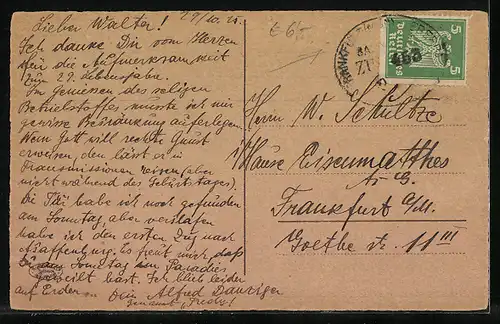 29/10. 25.
Lieber Walter!
Ich danke Dir vom Herzen
für die Aufmerksamkeit
zum 29. Lebensjahre.
Im Geniessen des seligen
Betriebstoffes musste ich mir
gewisse Beschränkung auferlegen.
Wem Gott will rechte Gunst
erweisen, den lässt er in
Transmissionen reisen (aber
nicht während des Geburtstages).
Die Tür habe ich noch gefunden
am Sonntag, aber verschlafen
habe ich den ersten Zug nach
Aschaffenburg. Es freut mich, daß
Du am Sonntag im Paradies
geweilt hast. Ich blieb leider
auf Erden
Dein Alfred Danziger
genannt „Fredy“!
5 5
Deutsches Reich
Herrn W. Schultze
i/Hause Eisenmatthes
A. G.
Frankfurt a/M.
Goethe str. 11 III